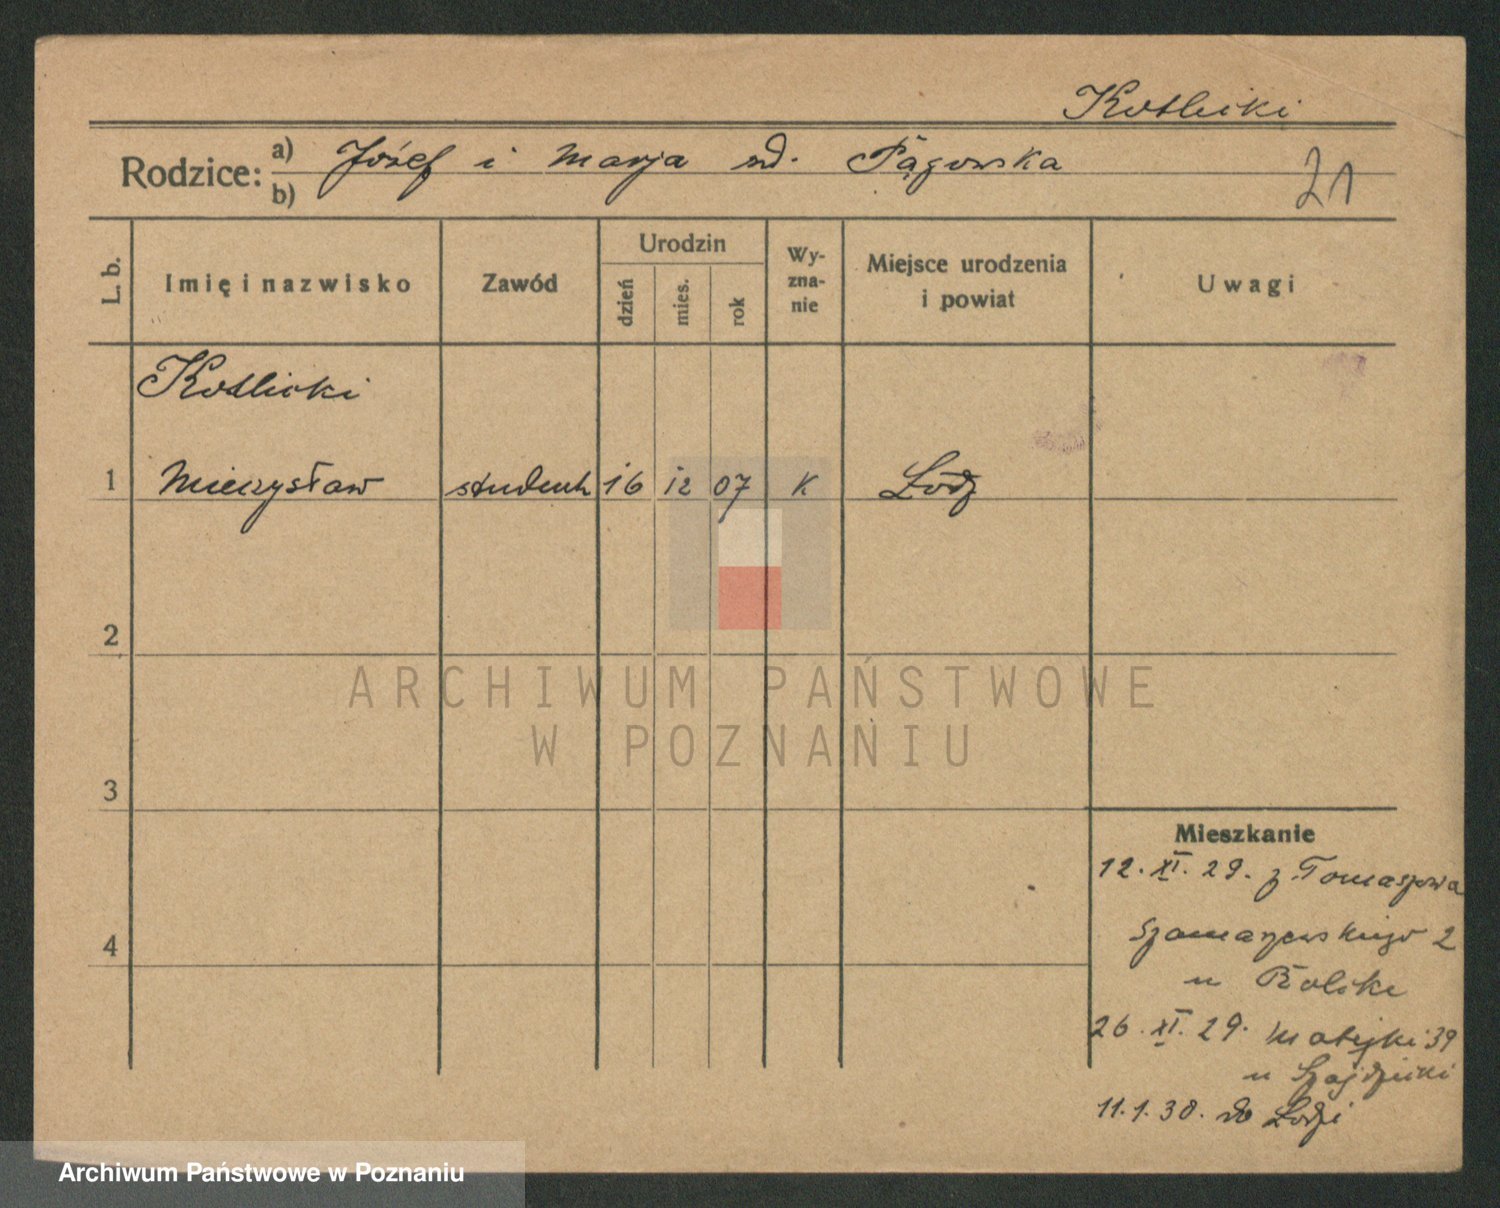 Kotlicki
Rodzice: a) Józef i Marja zd. Pągowska
b)
21
L. b.
Imię i nazwisko
Zawód
Urodzin
dzień
mies.
rok
Wy-
zna-
nie
Miejsce urodzenia
i powiat
Uwagi
Kotlicki
1 Mieczysław student 16 12 07 K Łódź
2
3
4
Mieszkanie
12. XI. 29. z Tomaszowa
Szamarzewskiego 2
u
26. XI. 29. Matejki 39
u
11.1.30. do Łodzi
ARCHIWUM PAŃSTWOWE
W POZNANIU
Archiwum Państwowe w Poznaniu